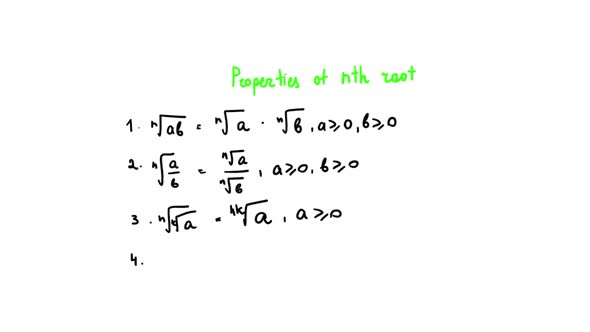 Properties of nth root
1. ⁿ√ab = ⁿ√a · ⁿ√b, a ≥ 0, b ≥ 0
2. ⁿ√(a/b) = ⁿ√a / ⁿ√b, a ≥ 0, b ≥ 0
3. ⁿ√(ᵏ√a) = ⁿᵏ√a, a ≥ 0
4.